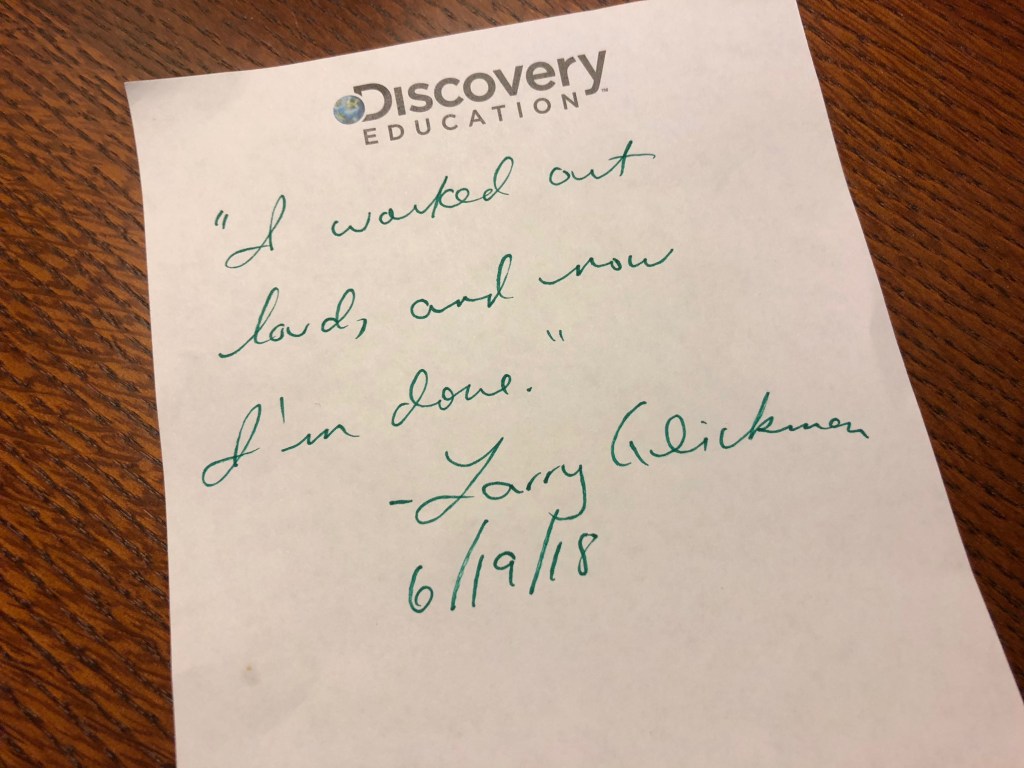 Discovery
EDUCATION™
"I worked out
loud, and now
I'm done."
-Larry Glickman
6/19/18